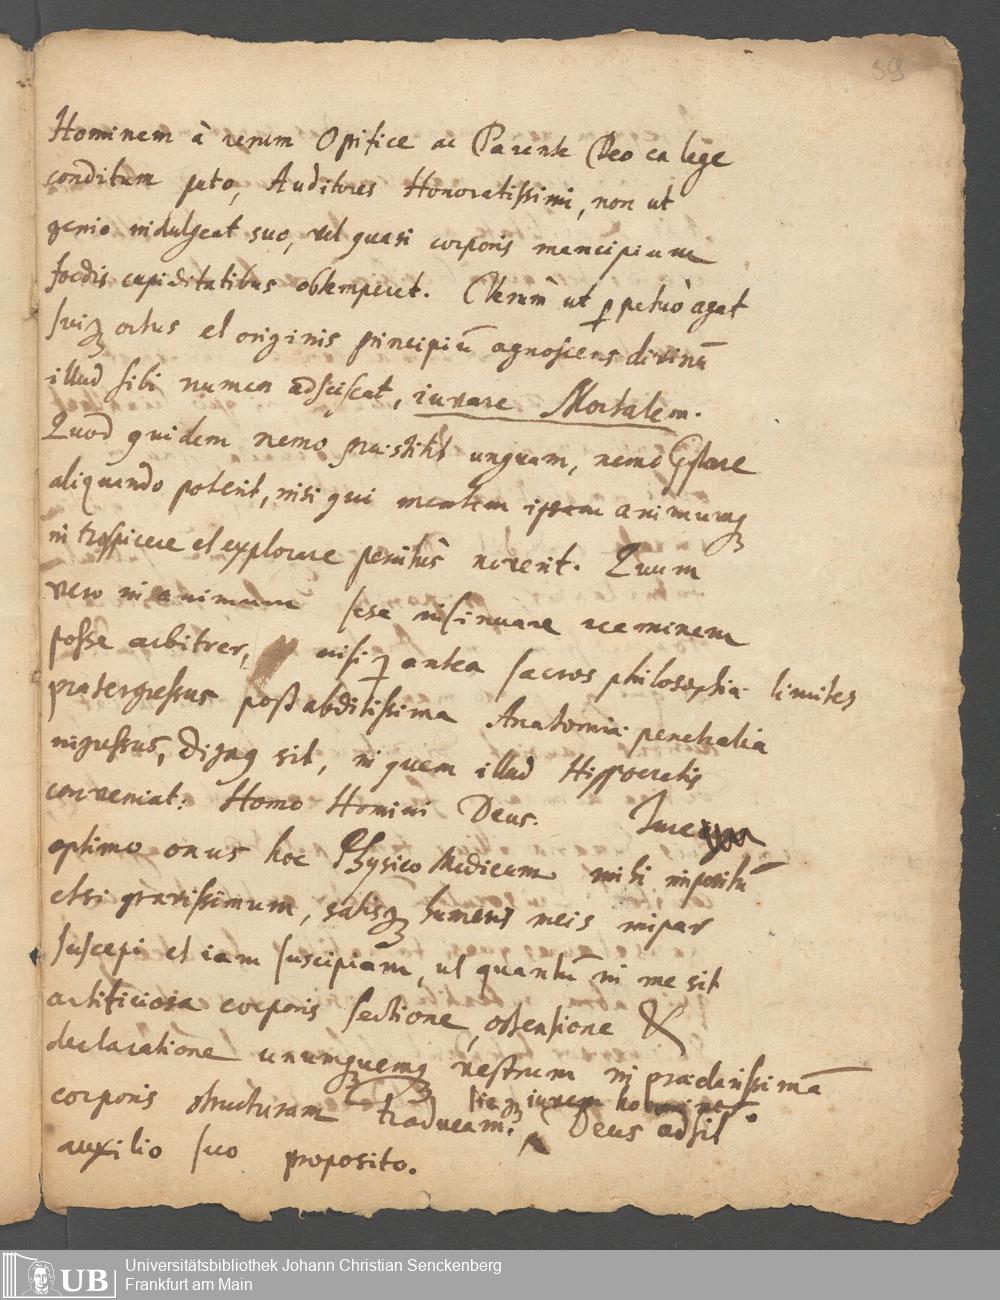 59
Hominem à rerum Opifice ac Parente Deo ea lege
conditum puto, Auditores Honoratissimi, non ut
genio indulgeat suo, vel quasi corporis mancipium
foedis cupiditatibus obtemperet. Verùm ut ꝑpetuò agat
suiqꝫ ortus et originis principiū agnoscens divinū
illud sibi numen adsciscat, iuvare Mortalem.
Quod quidem nemo præstitit unquam, nemo
aliquando poterit, nisi qui mentem animumqꝫ
introspicere et explorare penitùs noverit. Quum
vero in animum sese insinuare neminem
posse arbitrer, nisi qꝫ antea sacros philosophiæ limites
prætergressus post abditissima Anatomiæ penetralia
ingressus, sit, in quem illud Hippocratis
conveniat: Homo Homini Deus.
optimo onus hoc Physico Medicum mihi impositū
etsi gravissimum, satisqꝫ humeris meis impar
suscepi et iam suscipiam, ut quantū in me sit
artificiosa corporis sectione, ostensione &
declaratione unumquemqꝫ vestrum in præclarissimā
corporis structuram traducam: Deus adsit
auxilio suo proposito.
UB
Universitätsbibliothek Johann Christian Senckenberg
Frankfurt am Main